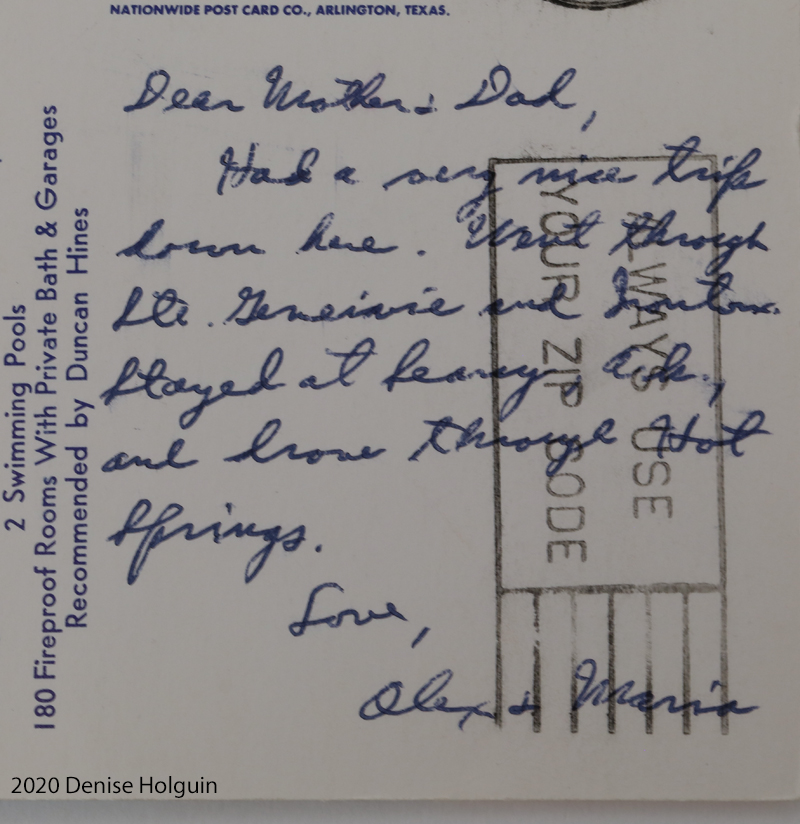 NATIONWIDE POST CARD CO., ARLINGTON, TEXAS.
Dear Mother & Dad,
Had a very nice trip
down here. Went through
Ste. Geneivie and
Stayed at Searcy, Ark.,
and drove through Hot
Springs.
Love,
Alex & Maria
ALWAYS USE
YOUR ZIP CODE
2 Swimming Pools
180 Fireproof Rooms With Private Bath & Garages
Recommended by Duncan Hines
2020 Denise Holguin